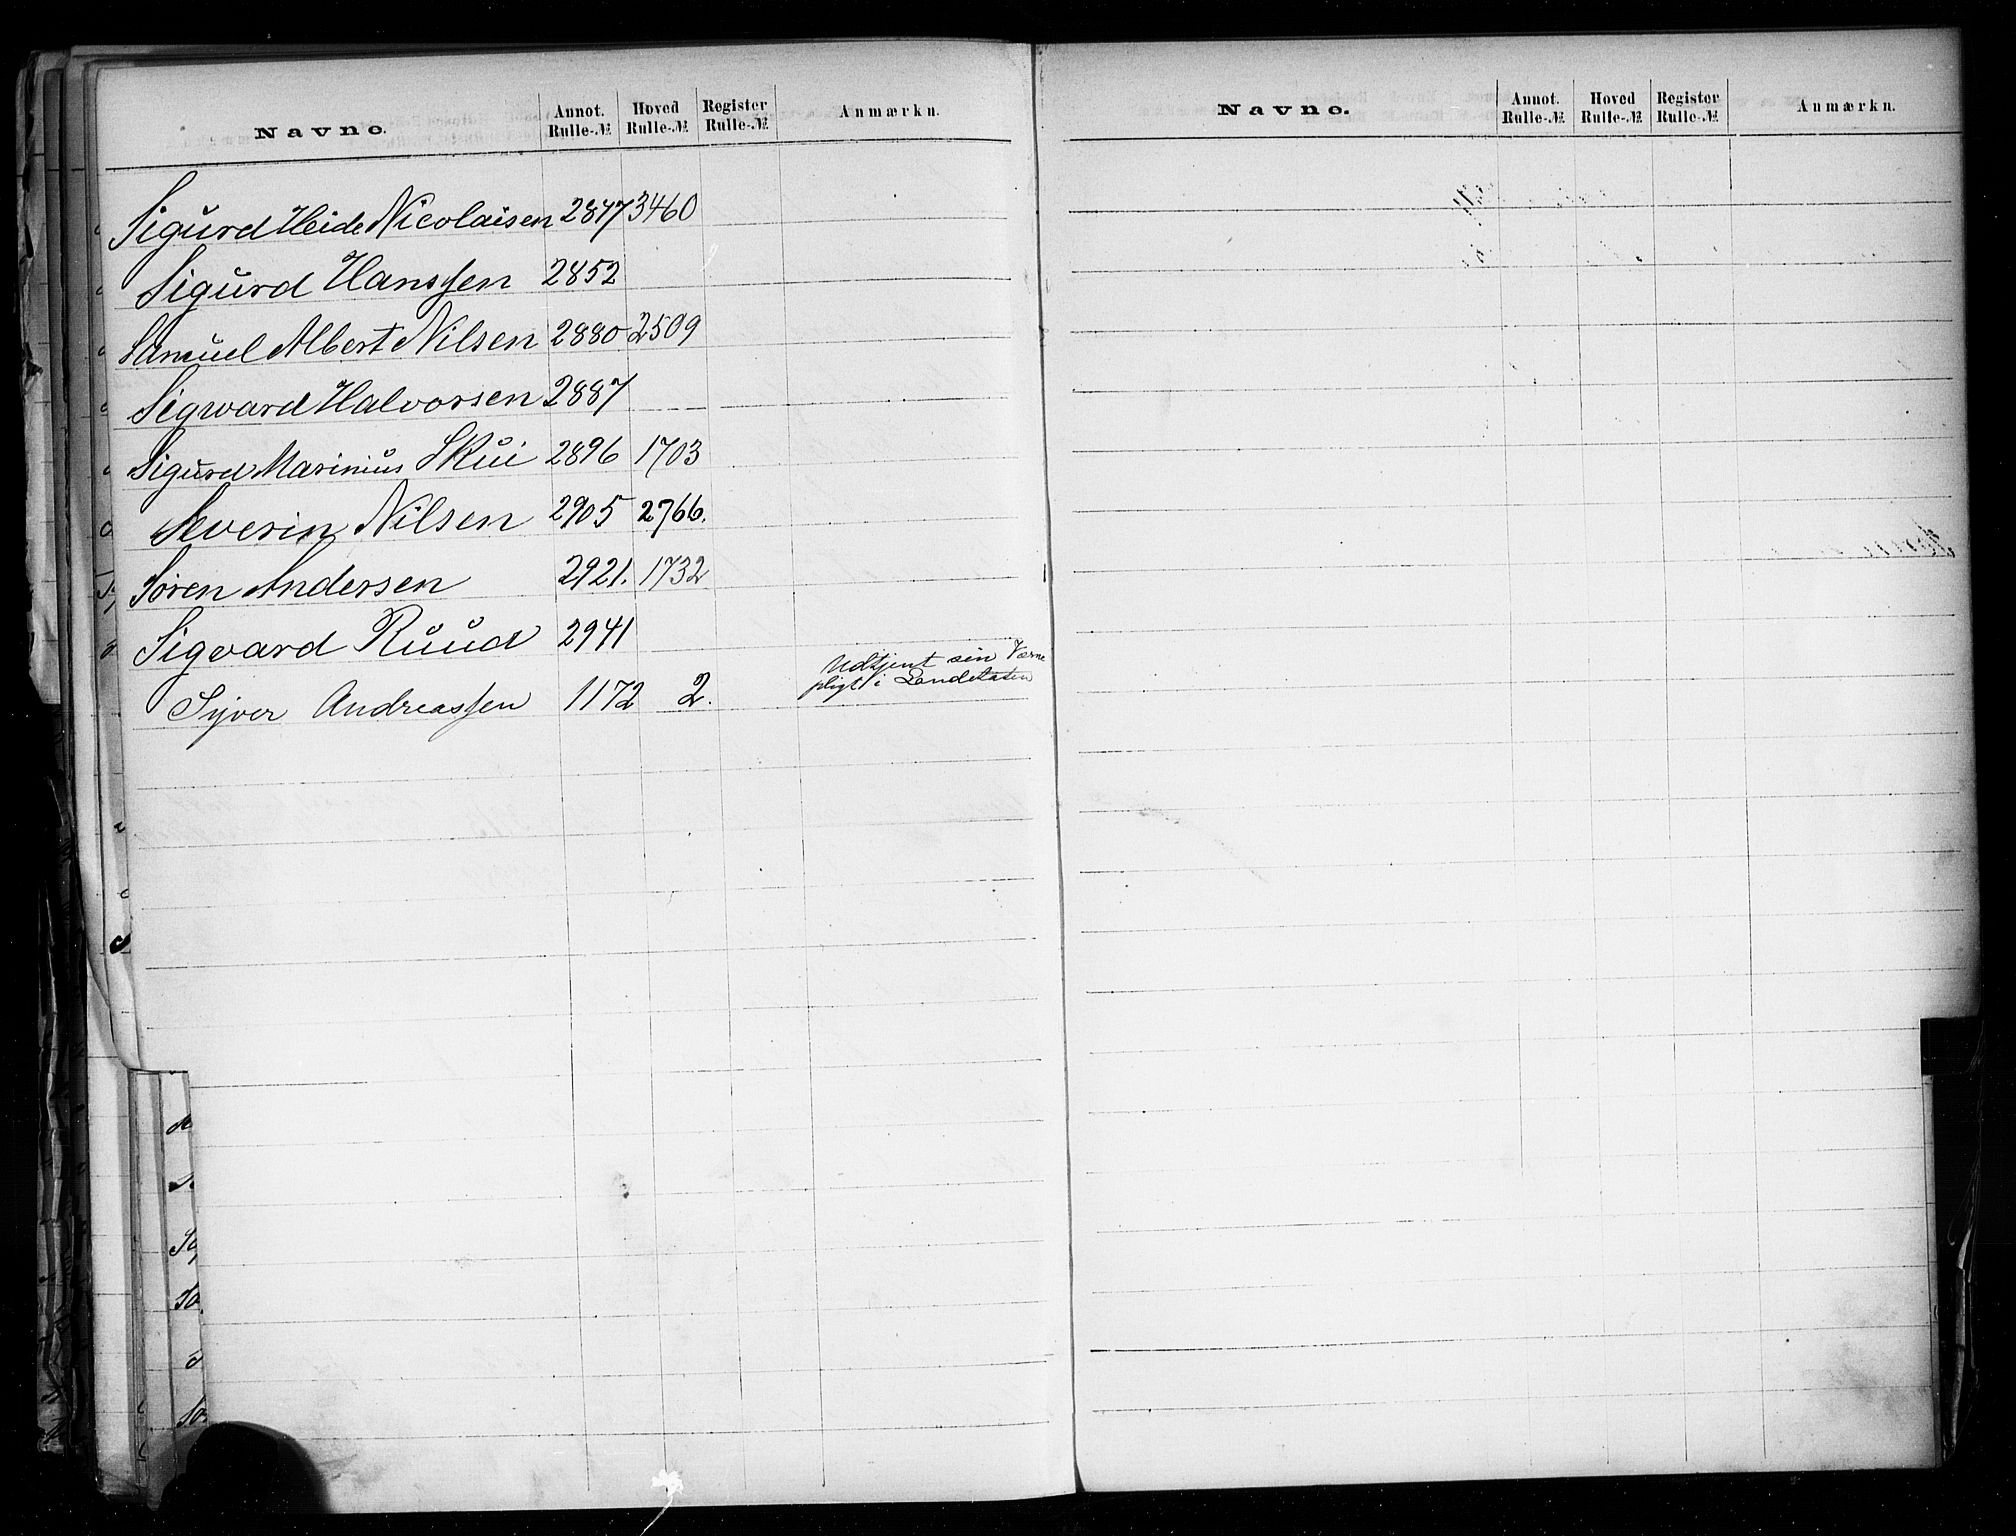 Navne. Annot. Rulle-№ Hoved Rulle-№ Register Rulle-№ Anmærkn.
Sigurd Heide Nicolaisen 2877 3460
Sigurd Hanssen 2852
Samuel Albert Nilsen 2880. 2509
Sigward Halvorsen 2887
Sigurd Marinius Skui 2896 1703
Severin Nilsen 2905 2766.
Søren Andersen 2921. 1732
Sigvard Ruud 2941
Udtjent sin Værne
Syver Andreassen 1172 2. pligt i
Navne. Annot. Rulle-№ Hoved Rulle-№ Register Rulle-№ Anmærkn.